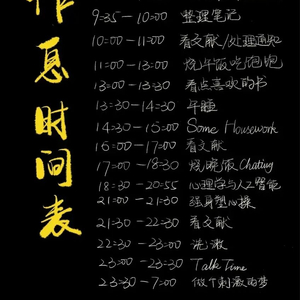 作息时间表
9:35-10:00 整理笔记
10:00-11:00 看文献/处理通知
11:00-13:00 烧午饭吃饱饱
13:00-13:30 看点喜欢的书
13:30-14:30 午睡
14:30-15:00 Some Housework
16:00-17:00 看文献
17:00-18:30 烧晚饭 Chating
18:30-20:55 心理学与人工智能
21:00-21:30 强身塑心操
21:30-22:30 看文献
22:30-23:00 洗漱
23:00-23:30 Talk Time
23:30-7:00 做个刺激的梦